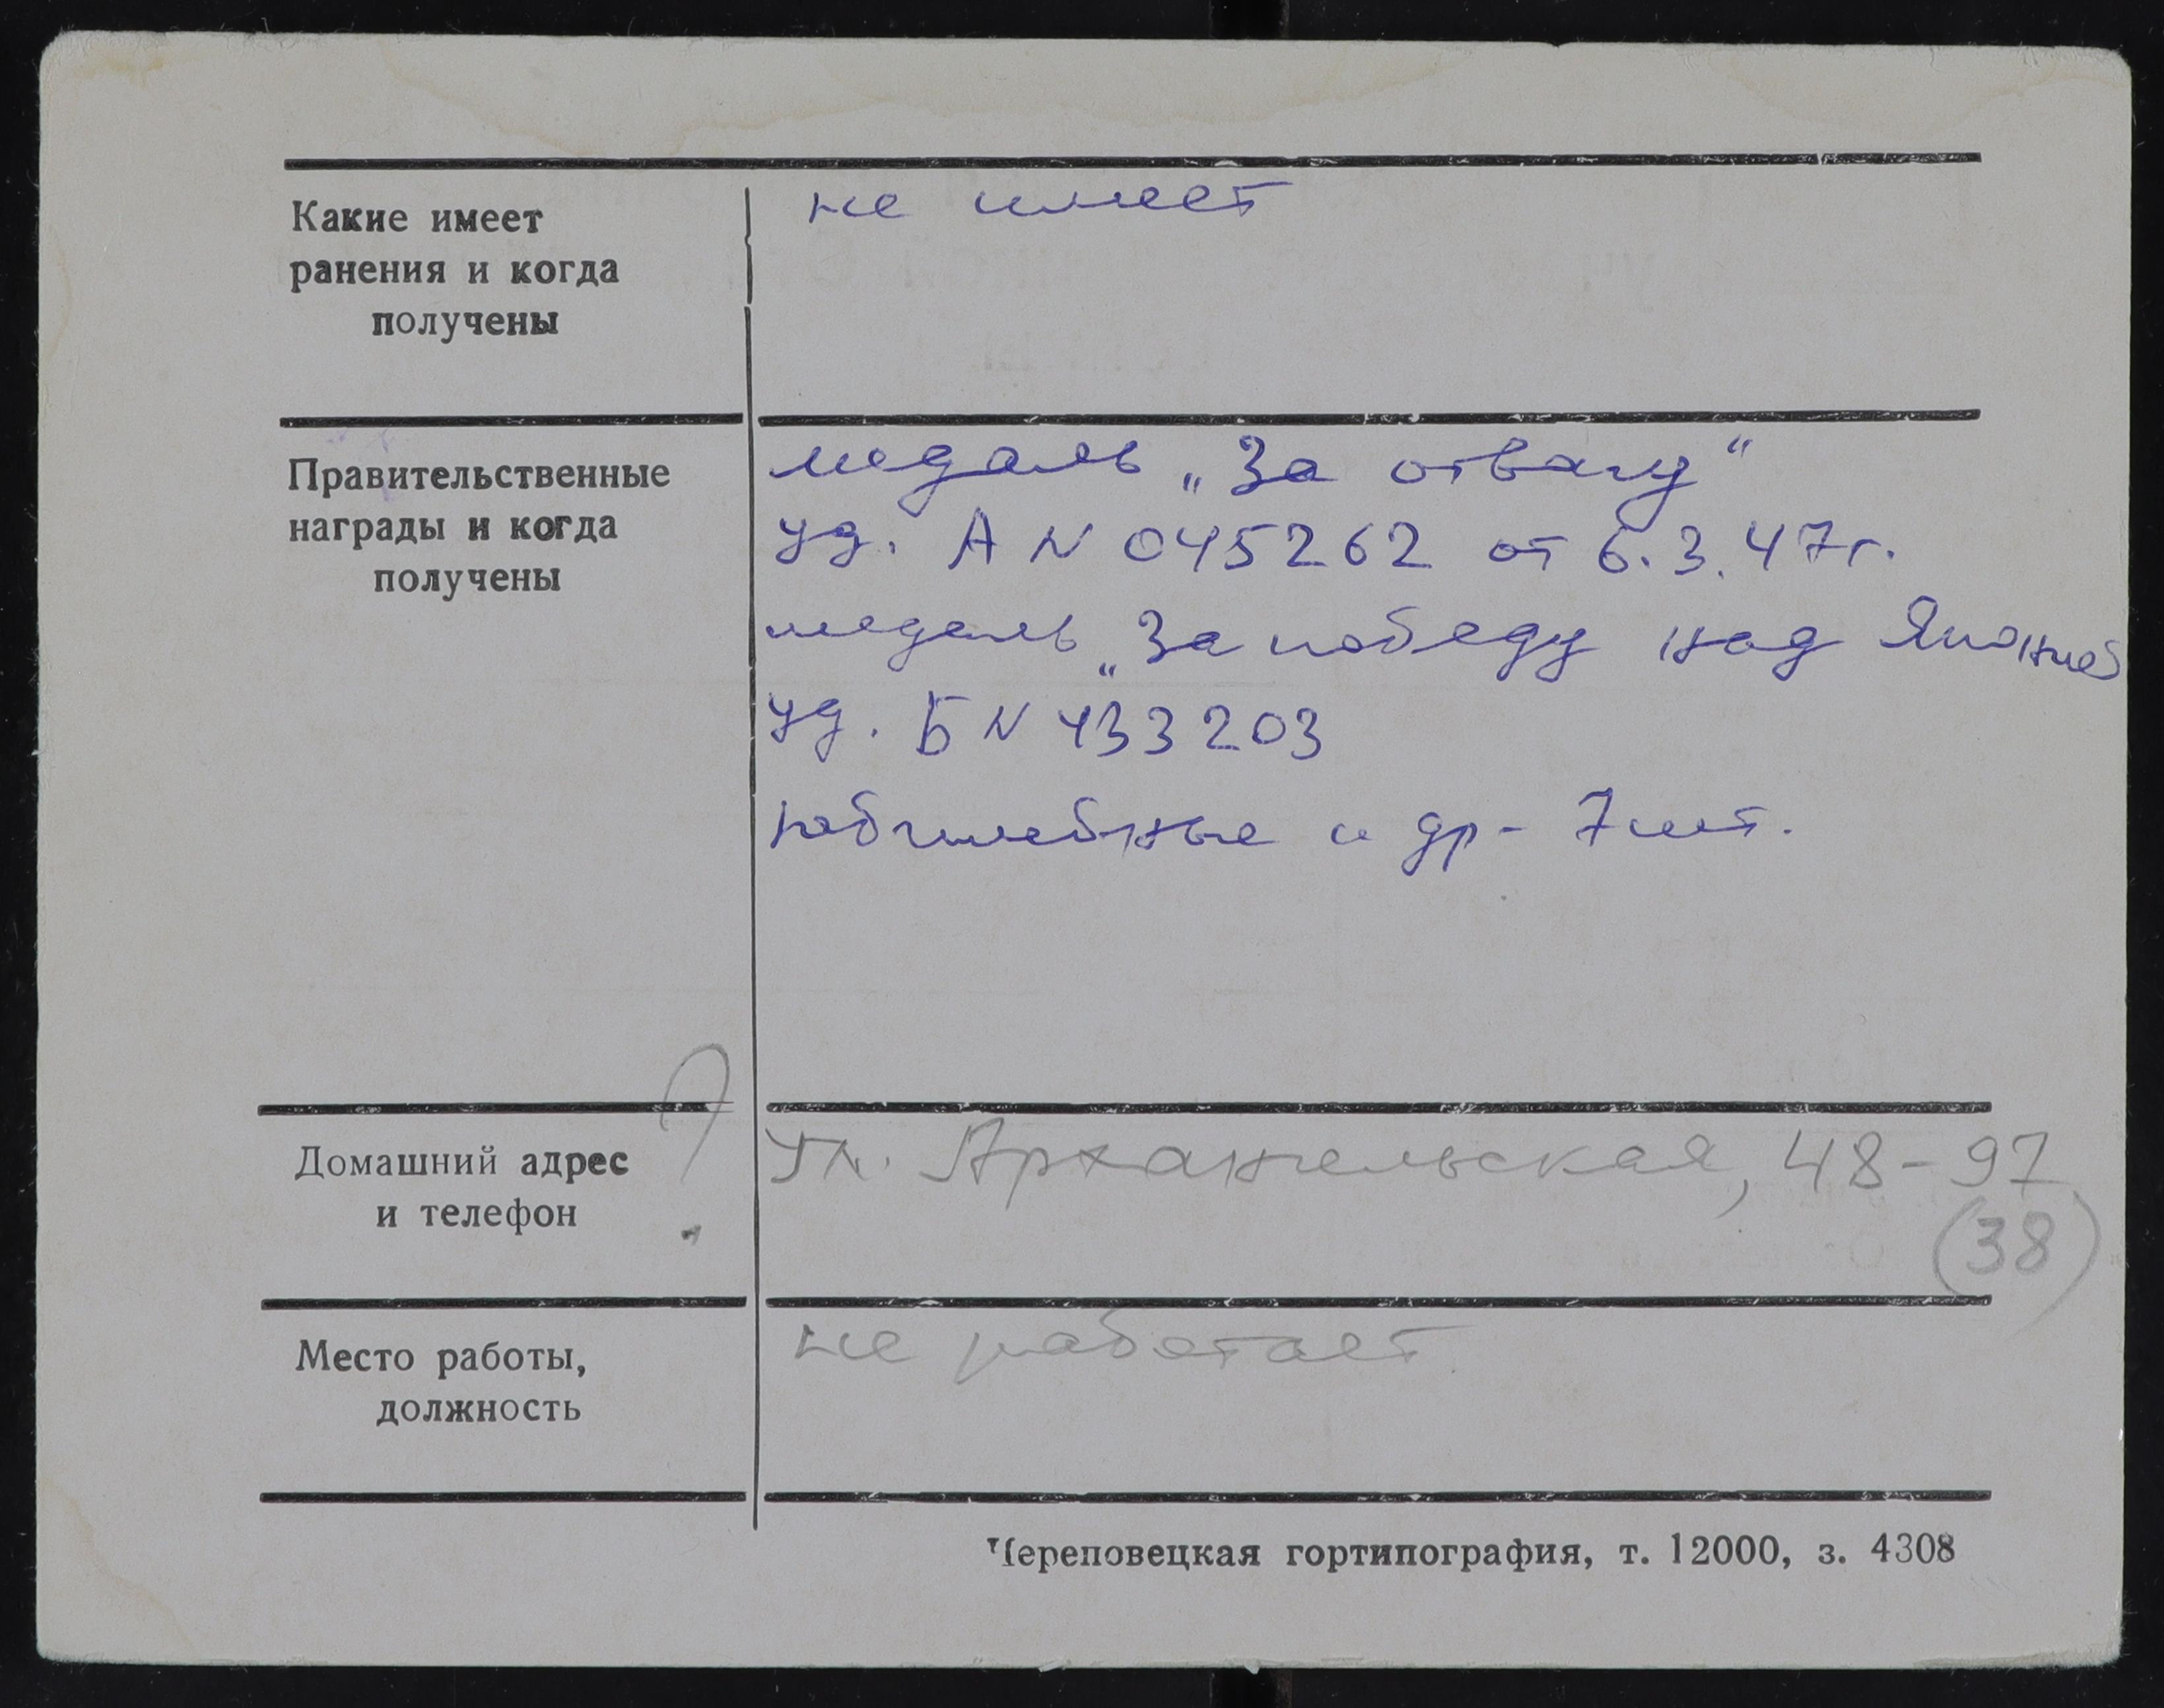 Какие имеет
ранения и когда
получены
не имеет
Правительственные
награды и когда
получены
медаль „За отвагу“
уд. А N 045262 от 6.3.47г.
медаль „За победу над Японией
уд. Б N 433203
юбилейные и др - 7 шт.
Домашний адрес
и телефон
ул. Архангельская, 48-97
(38)
Место работы,
должность
не работает
Череповецкая гортипография, т. 12000, з. 4308